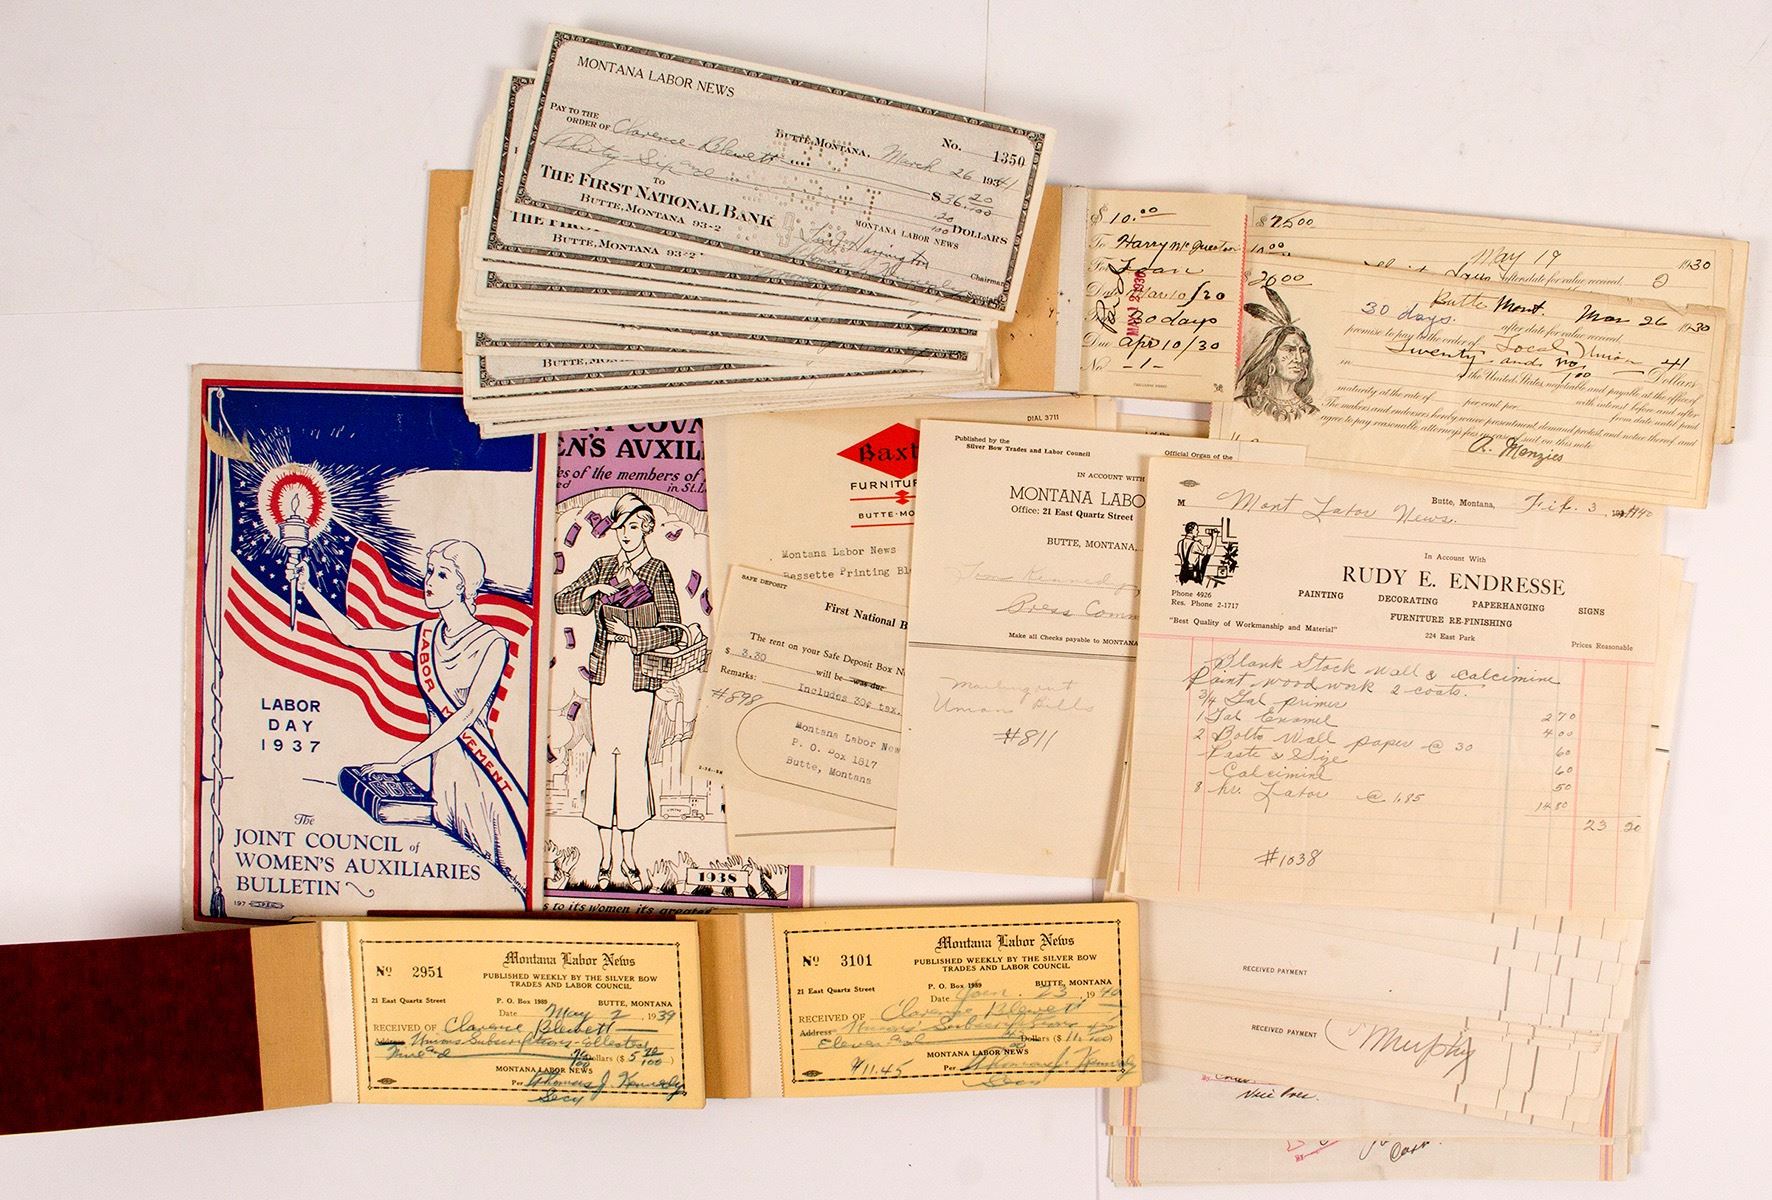 MONTANA LABOR NEWS
BUTTE, MONTANA, March 26 1941
No. 1350
PAY TO THE
ORDER OF Clarence Blewett
$36.20/100
Thirty-Six and 20/100 DOLLARS
TO
THE FIRST NATIONAL BANK
BUTTE, MONTANA 93-2
MONTANA LABOR NEWS
Harrington
Chairman
Secretary
THE FIRS
BUTTE, MONTANA 93-2
BUTTE, MON
$10.00
To Harry
For Loan
30 days
Due Apr 10/30
No -1-
MAY 12 1930
$25.00
May 19 1930
after date for value received
$20.00
Butte Mont. Mar 26 1930
30 days after date for value received
promise to pay to the order of Local Union 41
Twenty and no/100 Dollars
in the United States, negotiable and payable at the office of
maturity at the rate of per cent per with interest before and after
from date until paid
The makers and endorsers hereby waive presentment, demand, protest and notice thereof and
agree to pay reasonable attorney's fees suit on this note
A. Menzies
LABOR MOVEMENT
HOLY BIBLE
LABOR
DAY
1937
The
JOINT COUNCIL of
WOMEN'S AUXILIARIES
BULLETIN
197
NT COUN
EN'S AUXIL
es of the members of
ed in St.L
1938
s to its women its greatest
DIAL 3711
Baxt
FURNITUR
BUTTE-MO
Montana Labor News
Bessette Printing Bl
SAFE DEPOSIT
First National B
The rent on your Safe Deposit Box N
$ 3.30 will be was due
Remarks: Includes 30¢ tax.
#898
Montana Labor New
P. O. Box 1817
Butte, Montana
2-36-5M
Published by the
Silver Bow Trades and Labor Council
Official Organ of the
IN ACCOUNT WITH
MONTANA LABO
Office: 21 East Quartz Street
BUTTE, MONTANA,
Tom Kennedy
Press Comm
Make all Checks payable to MONTANA
Union Bills
#811
M Mont Labor News. Butte, Montana, Feb. 3, 1940
In Account With
RUDY E. ENDRESSE
Phone 4926
Res. Phone 2-1717
PAINTING DECORATING PAPERHANGING SIGNS
FURNITURE RE-FINISHING
"Best Quality of Workmanship and Material"
224 East Park
Prices Reasonable
Blank Stock Wall & Calcimine
Paint woodwork 2 coats.
3/4 Gal primer 2 70
1 Gal Enamel 4 00
2 Bolts Wall paper @ 30 60
Paste & Size 60
Calcimine 50
8 hr. Labor @ 1.85 14 80
23 20
#1038
RECEIVED PAYMENT
RECEIVED PAYMENT
Murphy
Vice Pres.
No 2951
Montana Labor News
PUBLISHED WEEKLY BY THE SILVER BOW
TRADES AND LABOR COUNCIL
21 East Quartz Street P. O. Box 1989 BUTTE, MONTANA
Date May 2, 1939
RECEIVED OF Clarence Blewett
Address Unions Subscriptions-Collected
Dollars ($5
MONTANA LABOR NEWS
Per Thomas J. Kennedy
Secy
No 3101
Montana Labor News
PUBLISHED WEEKLY BY THE SILVER BOW
TRADES AND LABOR COUNCIL
21 East Quartz Street P. O. Box 1989 BUTTE, MONTANA
Date Jan. 23, 1940
RECEIVED OF Clarence Blewett
Address Unions' Subscriptions
Eleven and 45/100 Dollars ($11.45/100)
MONTANA LABOR NEWS
$11.45 Per Thomas J. Kennedy
Secy